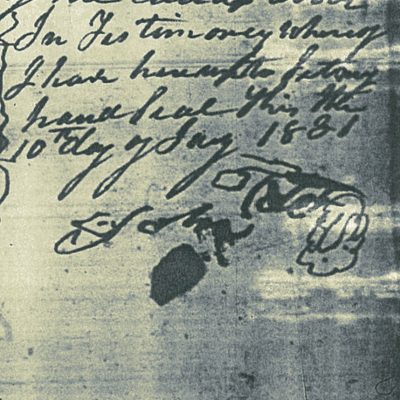 In Testimoney whereof
I have hereunto set my
hand & seal this the
10th day of July 1821
John